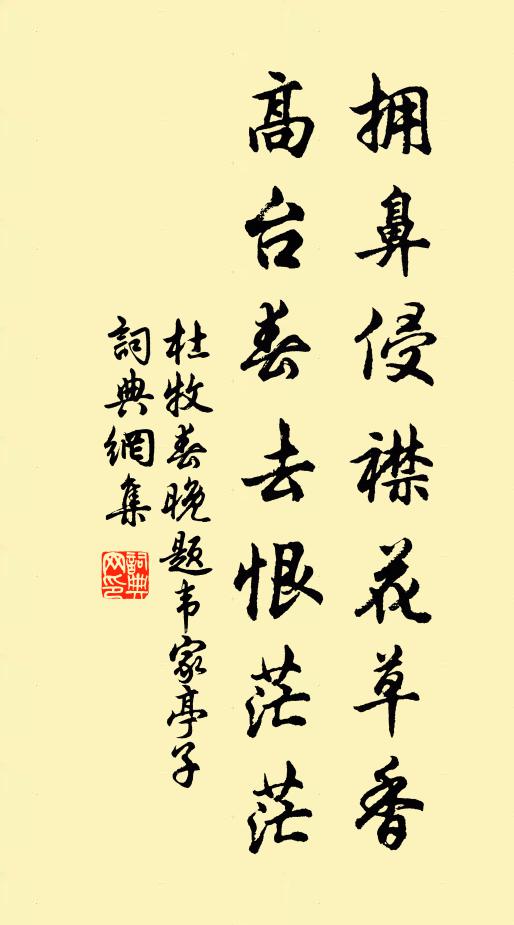 拥鼻侵襟花草香
高台春去恨茫茫
杜牧春晚题韦家亭子
詞典網集
詞典
网印